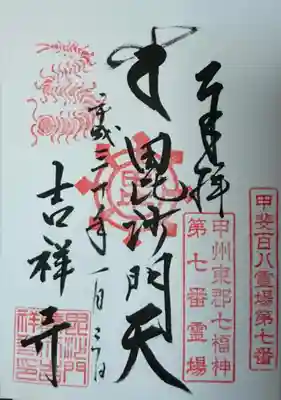 甲斐百八霊場第七番
奉拝
甲州東郡七福神
第七番霊場
毘沙門天
平成三十年一月三日
吉祥寺